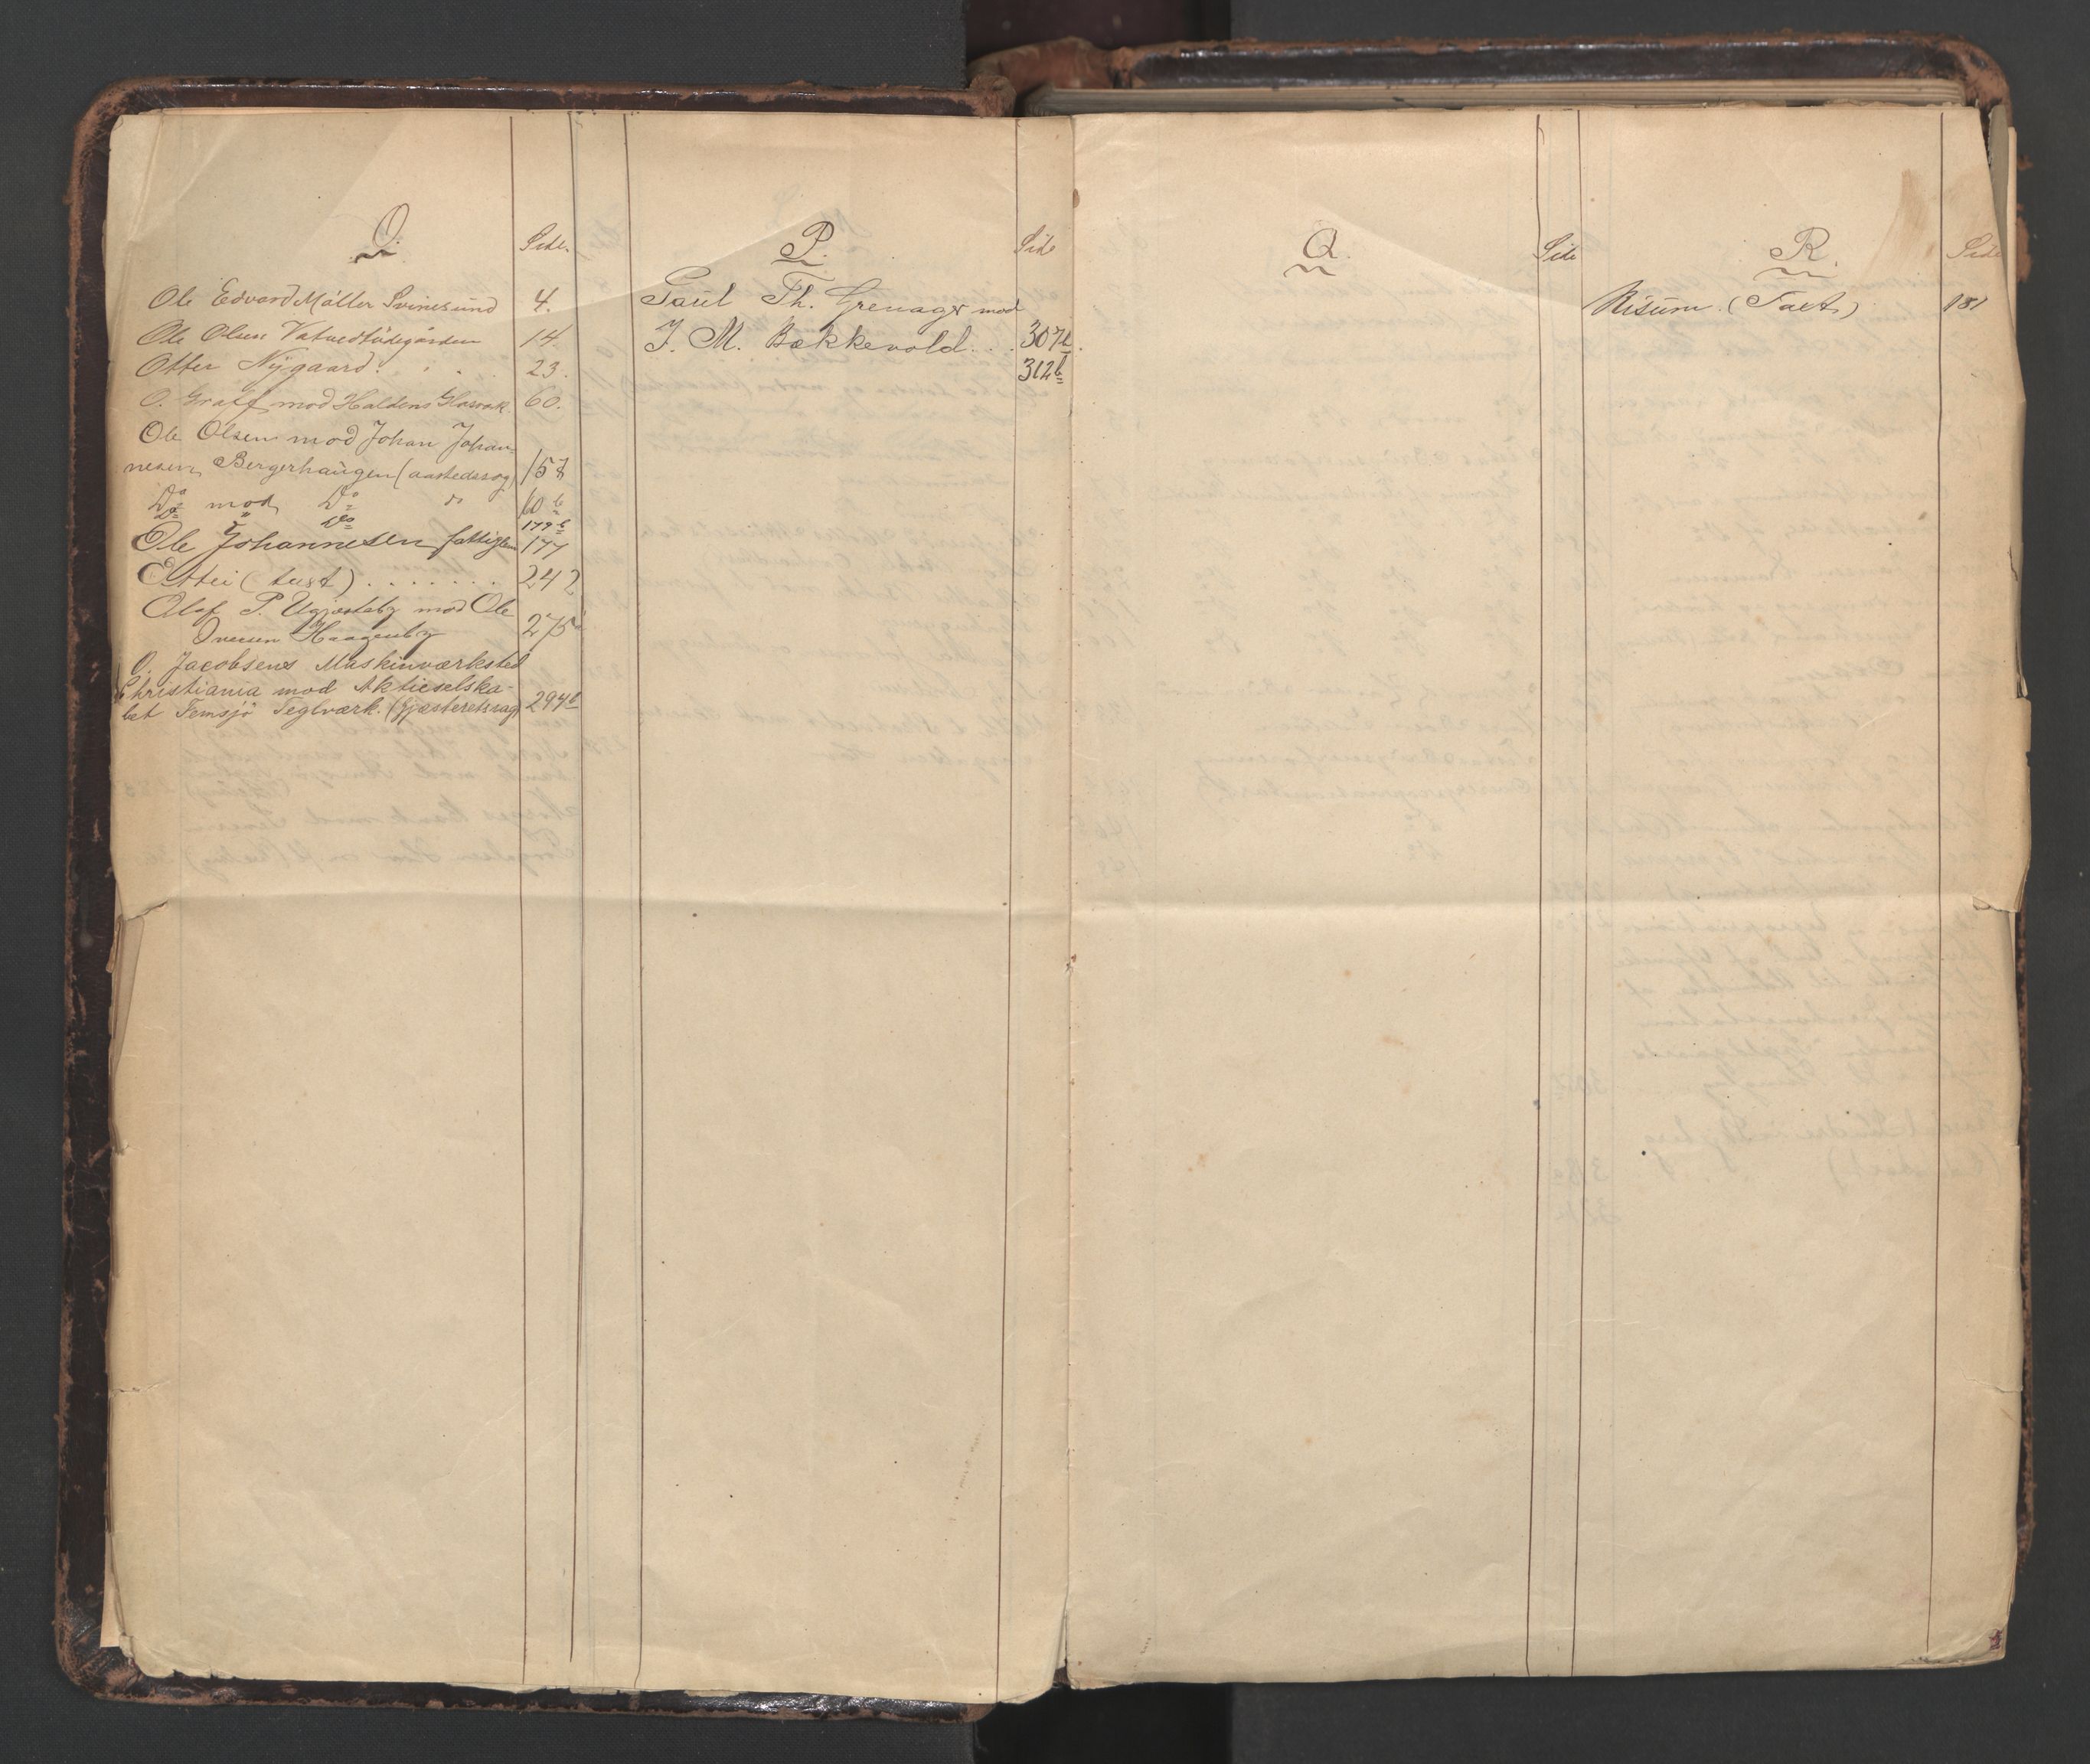 O.
Side.
Ole Edvard Möller Svinesund 4.
Ole Olsen 14.
Otter Nÿgaard. . . . 23.
O. Graff mod Haldens Glasvrk. 60.
Ole Olsen mod Johan Johan-
nesen, Bergerhaugen (aastedssag) 157
Do mod Do do 160 b
Do " Do 179 b
Ole Johannesen 177
Ettei (tust) . . . . . . . 242
Olaf P. mod Ole
Iversen Haagenby 275
O. Jacobsens Maskinværksted
Christiania mod Aktieselska-
bet Femsjö Teglværk. (Gjæsteretssag) 294b
P.
Side
Paul Th. Grenager mod
J. M. Bakkevold . . . 307b.
312b
Q.
Side
R.
Side
Risum. (Taxt) 181